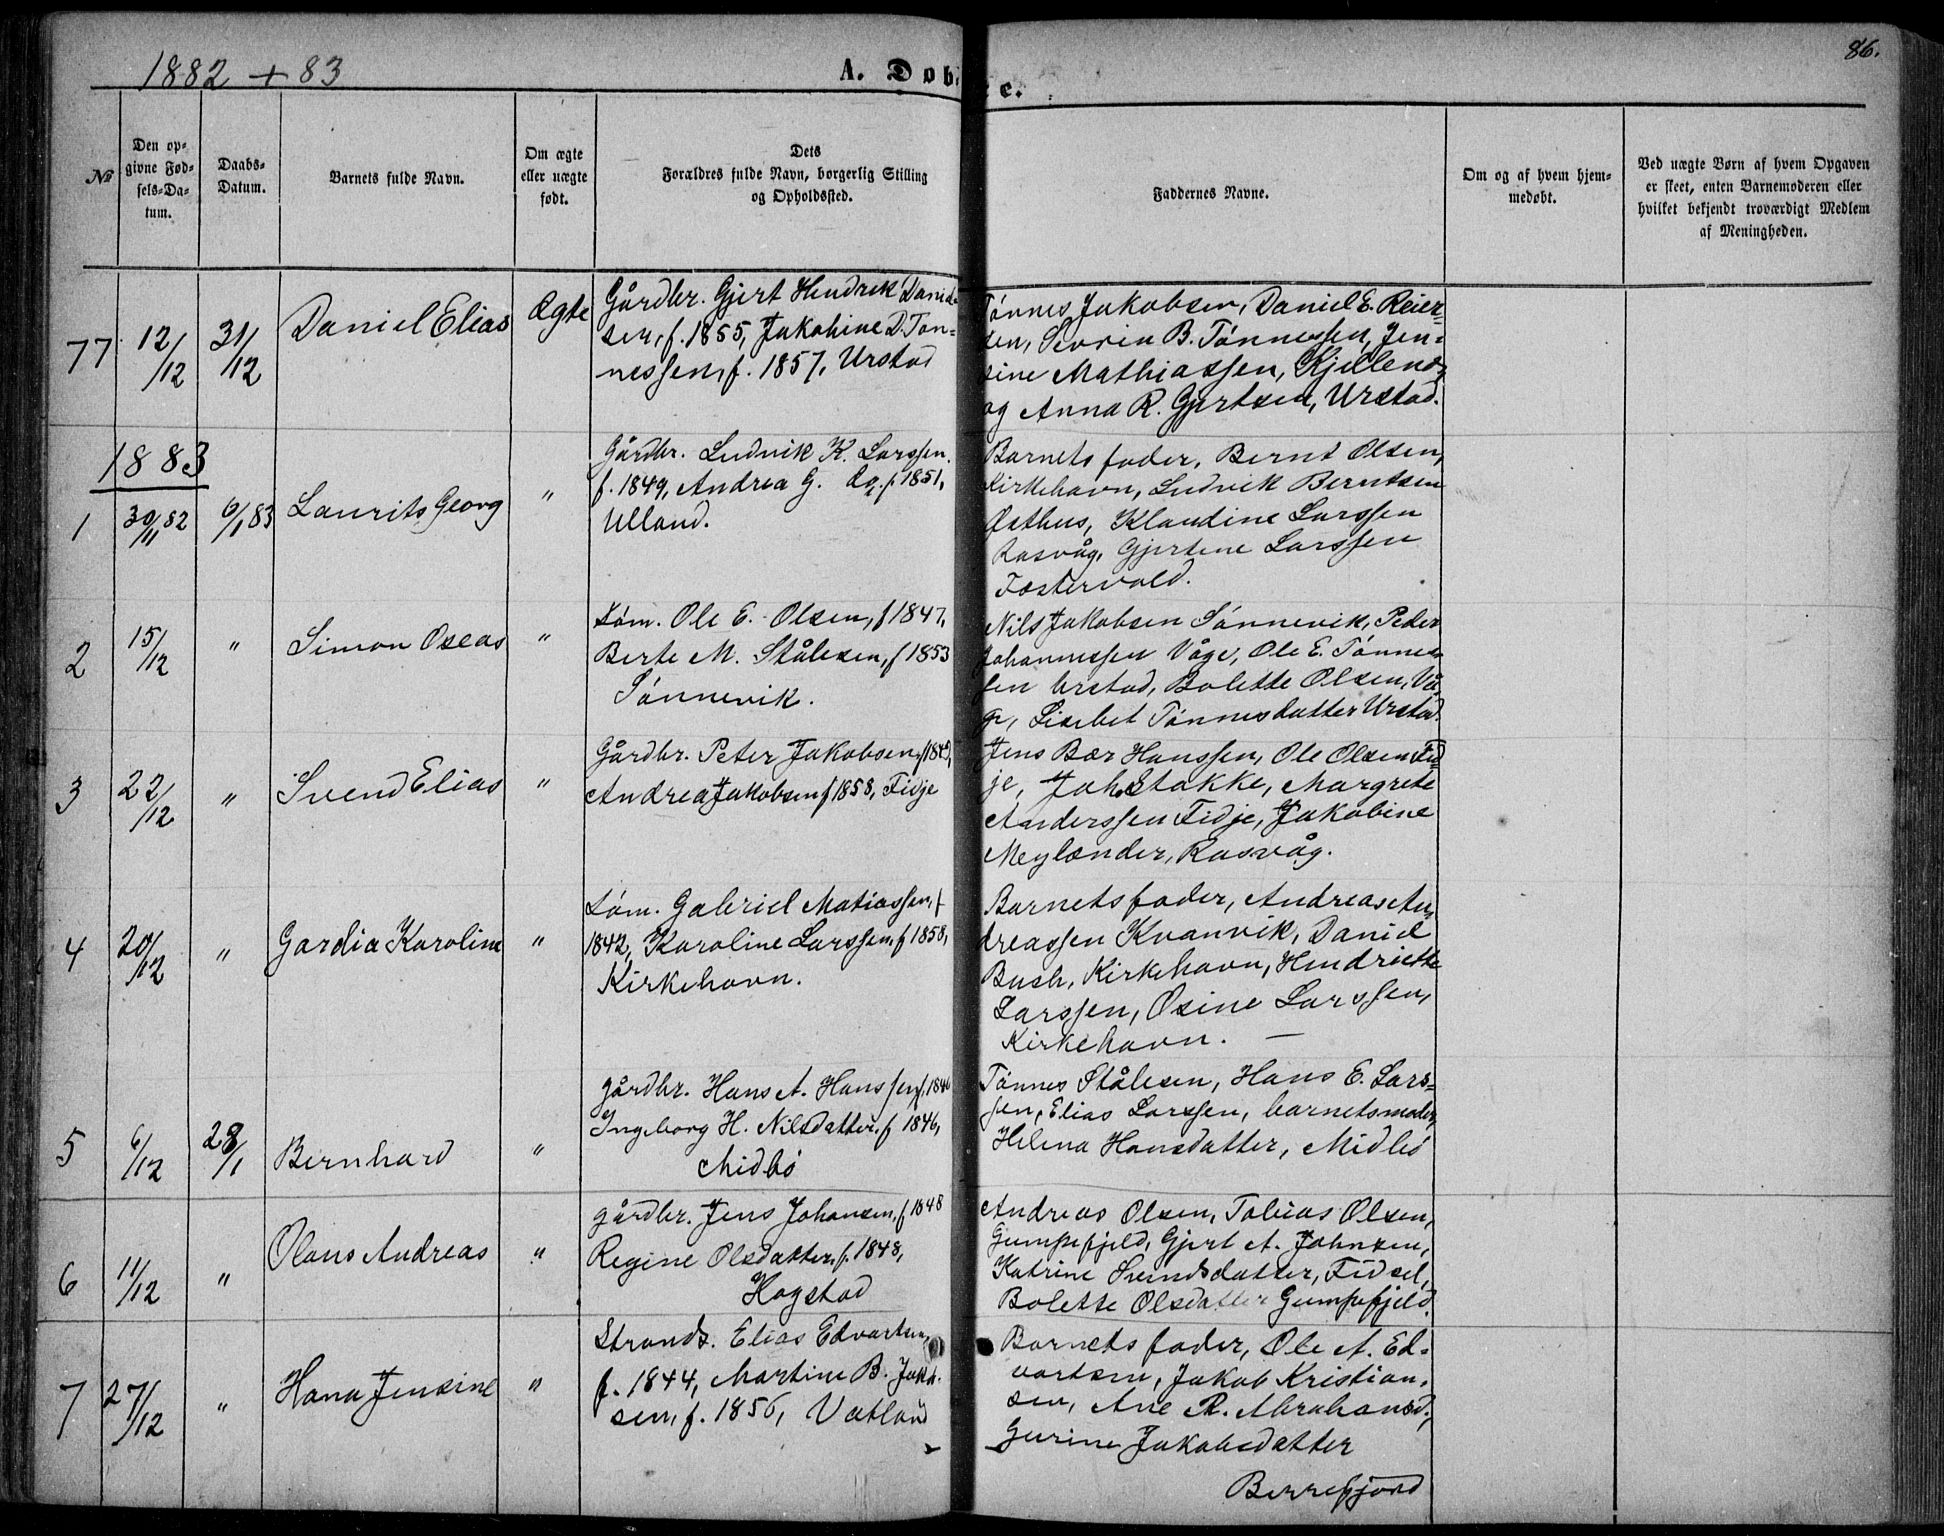 1882 + 83
A. Døbte.
86.
No
Den opgivne Fødsels-Datum.
Daabs-Datum.
Barnets fulde Navn.
Om ægte eller uægte født.
Dets Forældres fulde Navn, borgerlig Stilling og Opholdssted.
Faddernes Navne.
Om og af hvem hjemmedøbt.
Ved uægte Børn af hvem Opgaven er skeet, enten Barnemoderen eller hvilket bekjendt troværdigt Medlem af Meningheden.
77
12/12
31/12
Daniel Elias
Ægte
Gårdbr. Gjert Hendrek Daniel-
sen, f. 1855, Jakobine D. Tøn=
nessen, f. 1857, Urstad
Tønnes Jakobsen, Daniel E. Reier=
sen, Sevrin B. Tønnessen, Jen=
sine Mathiassen, Kjelland,
og Anna R. Gjertsen, Urstad.
1883
1
30/11 82
6/1 83
Laurits Georg
"
Gårdbr. Ludvik K. Larssen.
f. 1849, Andrea G. f. 1851,
Ulland.
Barnets fader, Bernt Olsen,
Kirkehavn, Ludvik Berntsen
Østhus, Klaudine Larssen
Rasvåg, Gjertine Larssen
Fostervold.
2
15/12
"
Simon Oseas
"
Søm. Ole E. Olsen, f 1847,
Berte M. Stålesen, f 1853
Sønnevik.
Nils Jakobsen Sønnevik, Peder
Johannessen Våge, Ole E. Tønnes
sen Urstad, Bolette Olsen, Vå-
ge, Lisebet Tønnesdatter Urstad.
3
22/12
"
Svend Elias
"
Gårdbr. Peter Jakobsen,
Andrea Jakobsen f 1858, Fidje
Jens Bær Hanssen, Ole Olsen Fid
je, Joh. Stakke, Margrete
Anderssen Fidje, Jakobine
Meylænder, Rasvåg.
4
20/12
"
Gardia Karoline
"
Søm. Gabriel Matiassen, f
1842, Karoline Larssen, f 1858,
Kirkehavn.
Barnets fader, Andreas An
dreassen Kvanvik, Daniel
Bush, Kirkehavn, Hendriette
Larssen, Osine Larssen,
Kirkehavn. —
5
6/12
28/1
Bernhard
"
gårdbr. Hans A. Hanssen, f. 1846
Ingeborg H. Nilsdatter, f 1846,
Midbø
Tønnes Stålesen, Hans E. Lars=
sen, Elias Larssen, barnets moder,
Helena Hansdatter, Midbø
6
11/12
"
Olaus Andreas
"
gårdbr. Jens Johansen, f 1848
Regine Olsdatter, f. 1848,
Hogstad
Andreas Olsen, Tobias Olsen,
Gumpefjeld, Gjert A. Johnsen,
Katrine Svendsdatter, Fidsel,
Bolette Olsdatter Gumpefjeld.
7
27/12
"
Hana Jensine
"
Strands. Elias Edvartsen,
f. 1844, Martine B. Jakob-
sen, f. 1856, Vatland
Barnets fader, Ole A. Ed=
vartsen, Jakob Kristian-
sen, Ane R. Abrahamsd.,
Gurine Jakobsdatter
Berrefjord